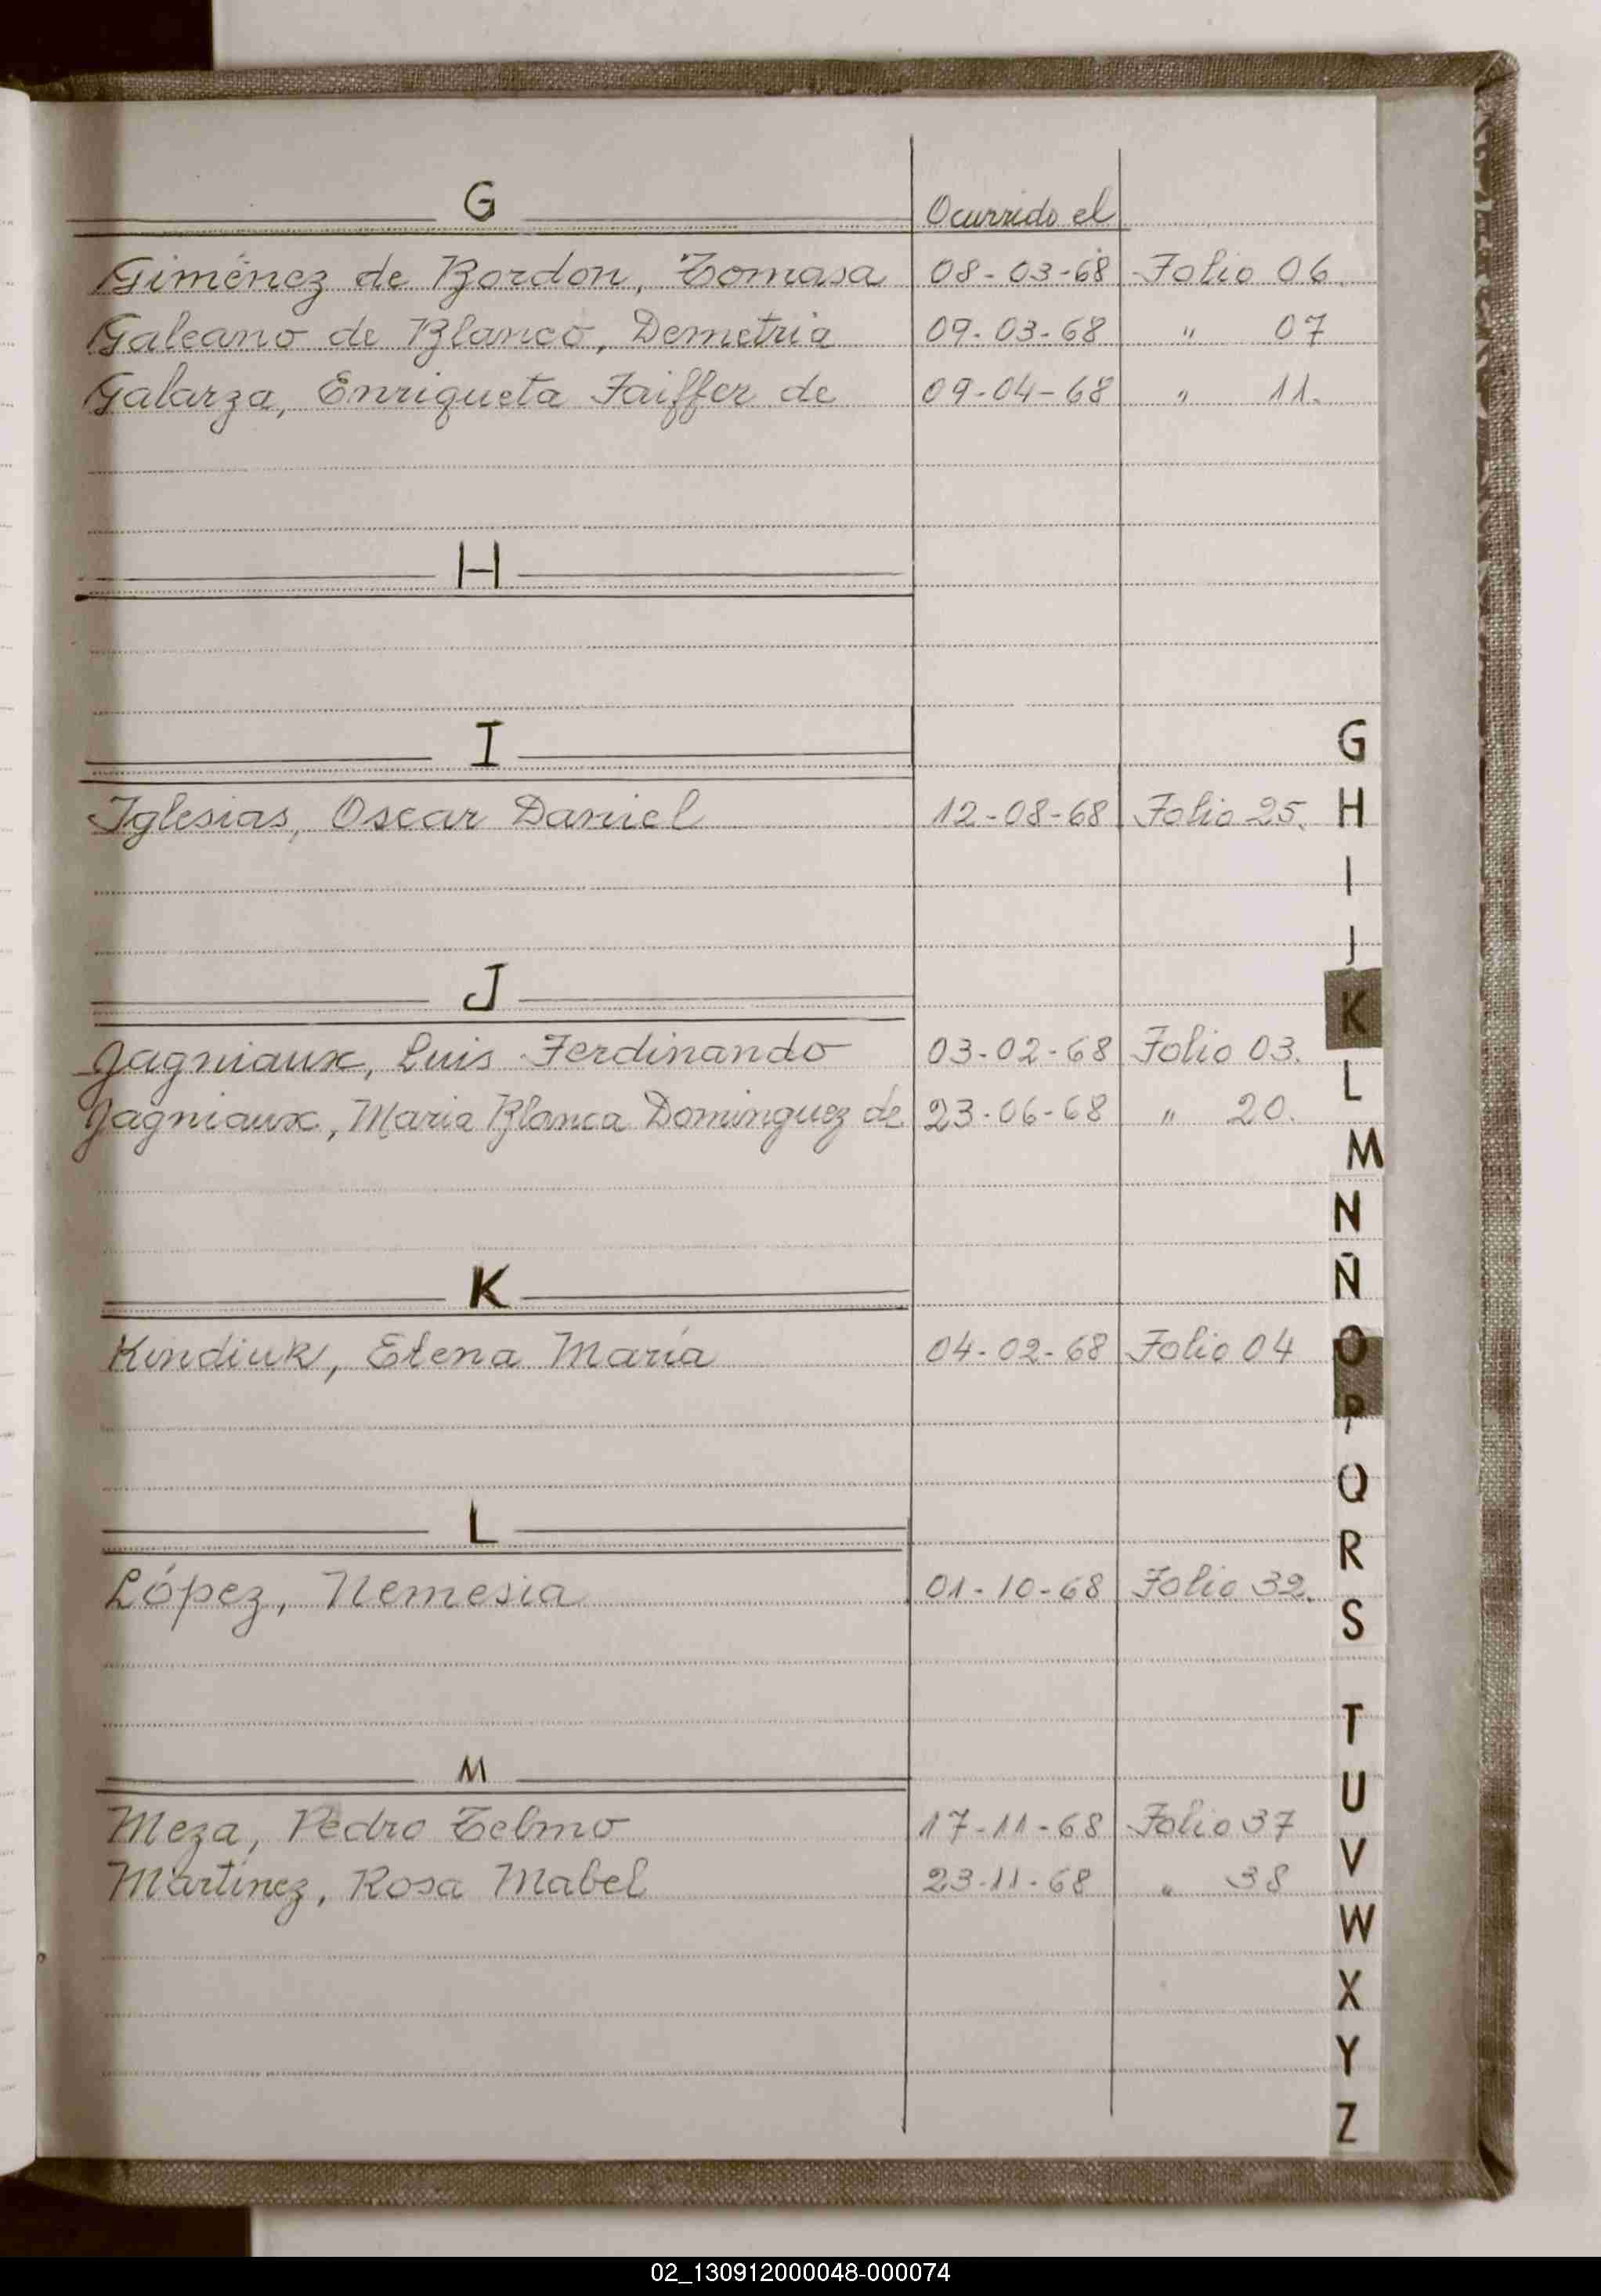 G Ocurrido el
Giménez de Bordon, Tomasa 08-03-68 Folio 06.
Galeano de Blanco, Demetria 09-03-68 " 07
Galarza, Enriqueta Faiffer de 09-04-68 " 11.
H
I
Iglesias, Oscar Daniel 12-08-68 Folio 25.
J
Jagniaux, Luis Ferdinando 03-02-68 Folio 03.
Jagniaux, Maria Blanca Dominguez de 23-06-68 " 20.
K
Kindiuk, Elena María 04-02-68 Folio 04
L
López, Nemesia 01-10-68 Folio 32.
M
Meza, Pedro Telmo 17-11-68 Folio 37
Martínez, Rosa Mabel 23-11-68 " 38
G
H
I
J
K
L
M
N
Ñ
O
P
Q
R
S
T
U
V
W
X
Y
Z
02_130912000048-000074